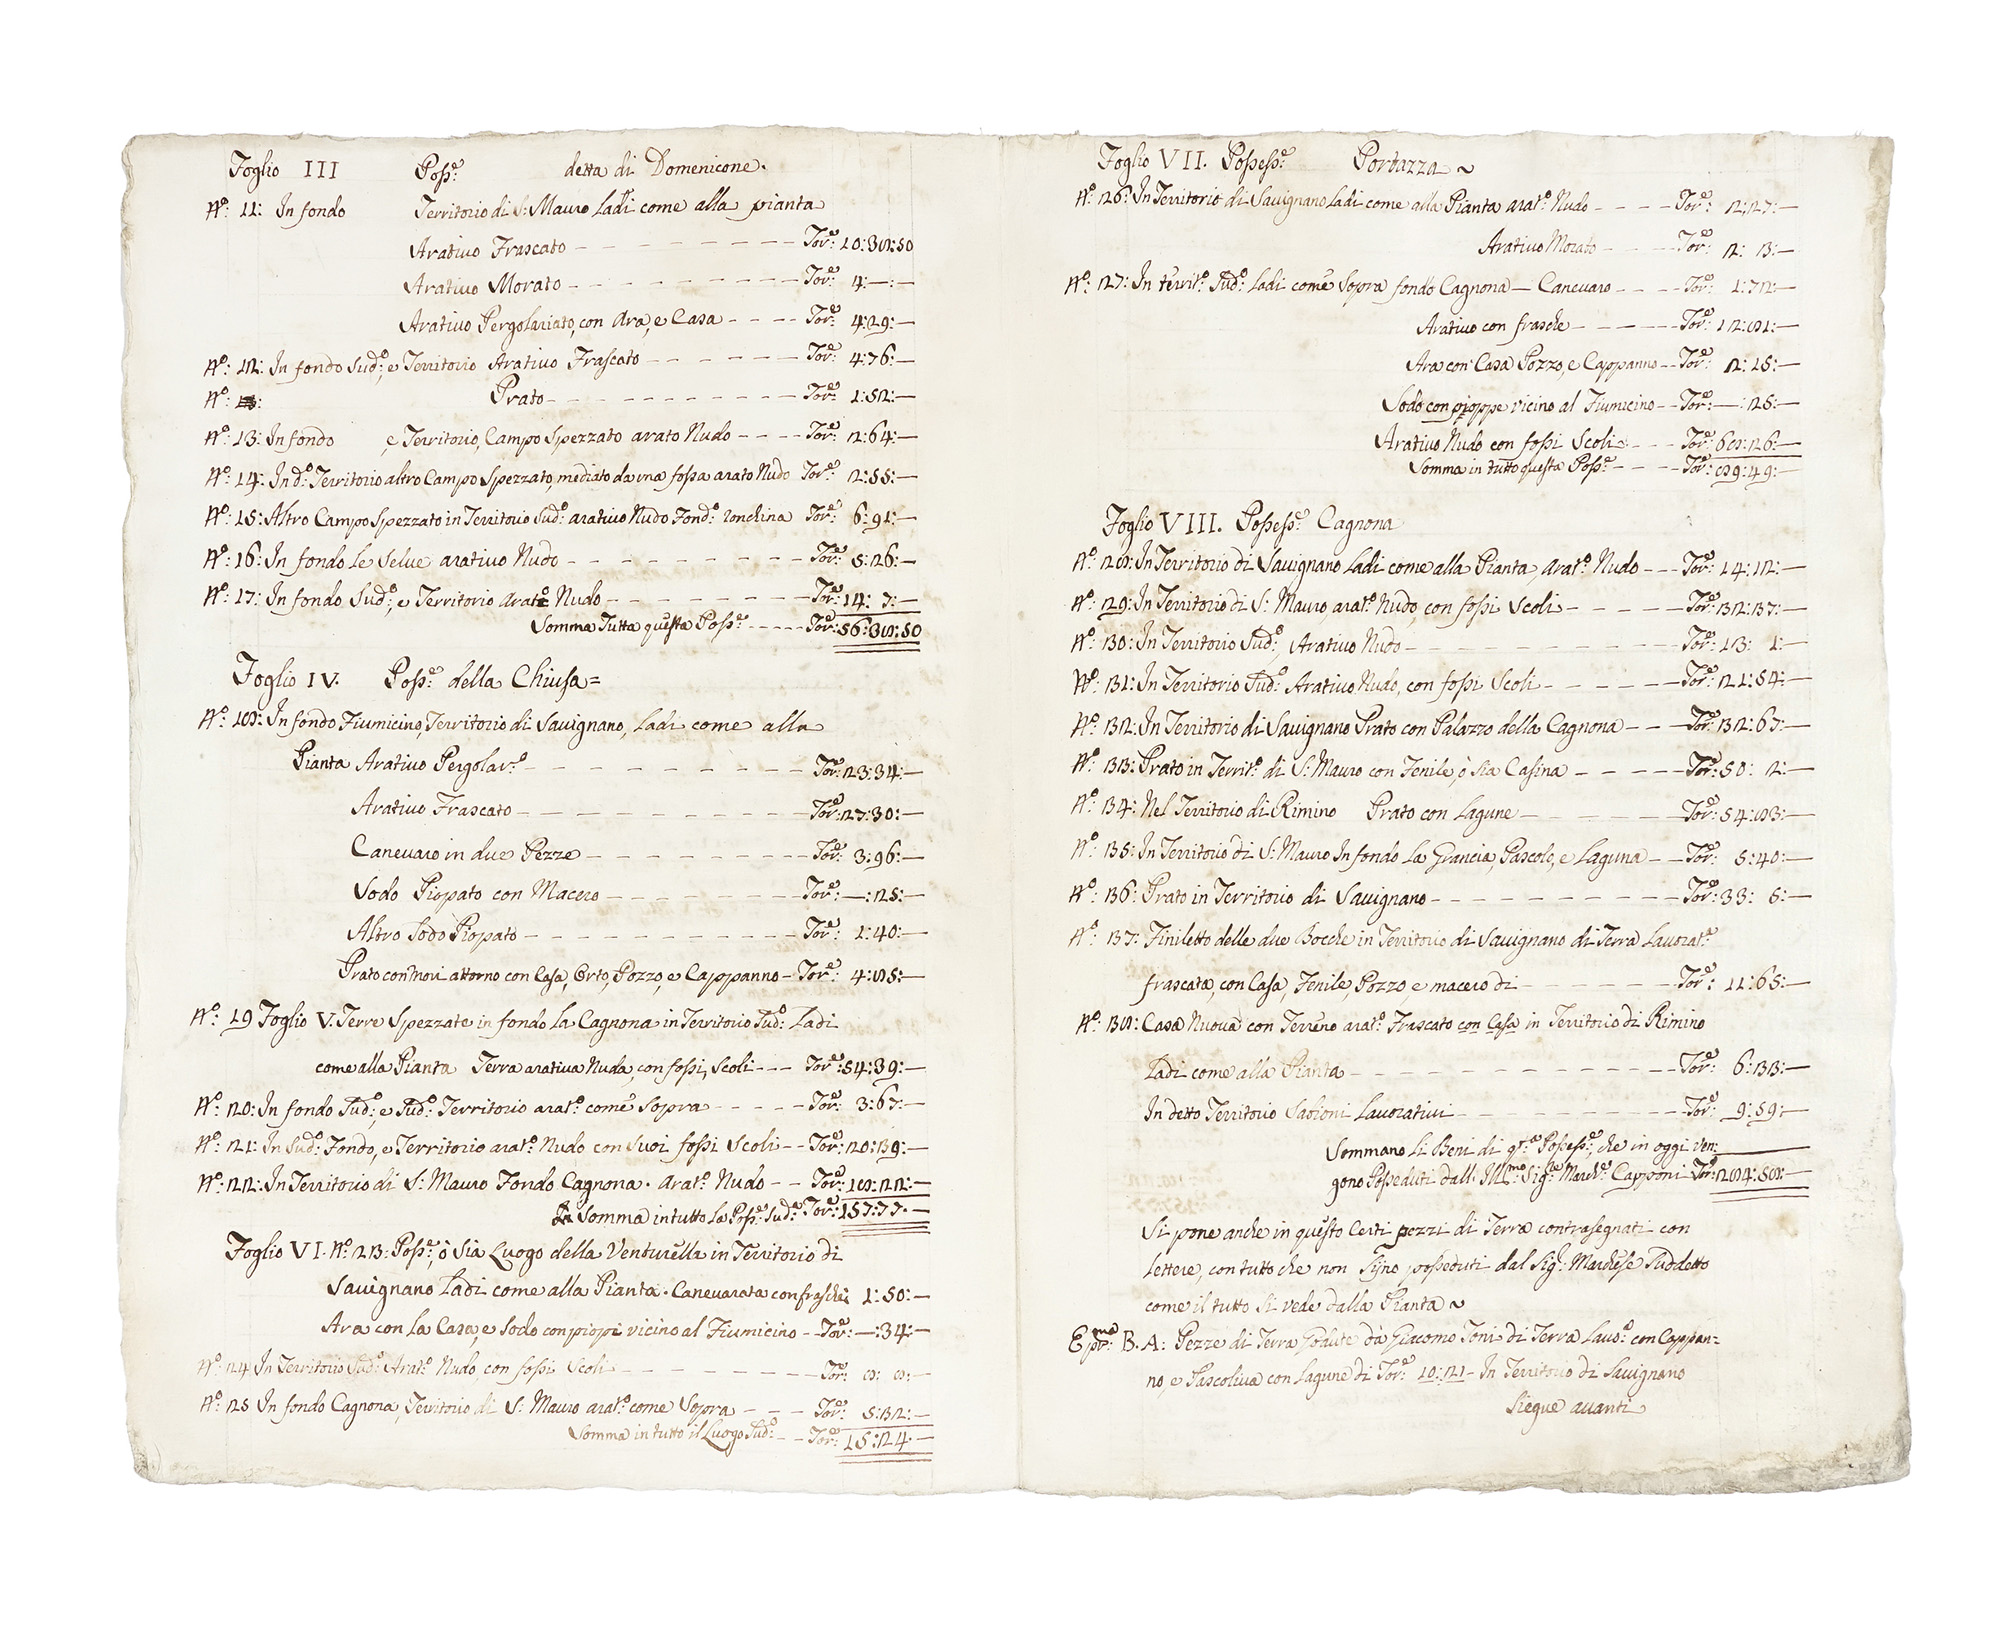 Foglio III Poss.e detta di Domenicone.
N.o: 11: In fondo Territorio di S: Mauro Ladi come alla pianta
Arativo Frascato - - - Tor.e: 10:38:50
Arativo Morato - - - Tor.e: 4:—:—
Arativo Pergolariato, con Ara, e Casa - - - Tor.e: 4:29:—
N.o: 12: In fondo Sud.o; e Territorio Arativo Frascato - - - Tor.e: 4:76:—
N.o: Prato - - - Tor.e: 1:52:—
N.o: 13: In fondo , e Territorio, Campo Spezzato arato Nudo - - - Tor.e: 2:64:—
N.o: 14: In d.o: Territorio altro Campo Spezzato, mediato da una fossa arato Nudo Tor.e: 2:55:—
N.o: 15: Altro Campo Spezzato in Territorio Sud.o: arativo Nudo Fond.o: ronchina Tor.e: 6:91:—
N.o: 16: In fondo Le Selve arativo Nudo - - - Tor.e: 5:26:—
N.o: 17: In fondo Sud.o; e Territorio Arat.o Nudo - - - Tor.e: 14: 7:—
Somma Tutta questa Poss.e - - - Tor.e: 56:38:50
Foglio IV. Poss.e della Chiusa=
N.o: 18: In fondo Fiumicino, Territorio di Savignano, Ladi come alla
Pianta Arativo Pergolar.o - - - Tor.e: 23:34:—
Arativo Frascato - - - Tor.e: 27:30:—
Canevaro in due Pezze - - - Tor.e: 3:96:—
Sodo Piopato con Macero - - - Tor.e: —:25:—
Altro Sodo Piopato - - - Tor.e: 1:40:—
Prato con Mori attorno con Casa, Orto, Pozzo, e Cappanno - Tor.e: 4:85:—
N.o: 19 Foglio V. Terre Spezzate in fondo La Cagnona in Territorio Sud.o: Ladi
come alla Pianta Terra arativa Nuda, con fossi, Scoli - - - Tor.e: 54:39:—
N.o: 20: In fondo Sud.o; e Sud.o: Territorio arat.o: come Sopra - - - Tor.e: 3:67:—
N.o: 21: In Sud.o: Fondo, e Territorio arat.o: Nudo con suoi fossi Scoli - - Tor.e: 20:39:—
N.o: 22: In Territorio di S: Mauro Fondo Cagnona. arat.o: Nudo - - Tor.e: 18:22:—
Somma in tutto La Poss.e: Sud.a Tor.e: 157:77:—
Foglio VI. N.o: 23: Poss.e; ò Sia Luogo della Venturella in Territorio di
Savignano Ladi come alla Pianta. Canevarata con frasche: 1:50:—
Ara con La Casa, e Sodo con piopi vicino al Fiumicino - - Tor.e: —:34:—
N.o: 24 In Territorio Sud.o: Arat.o: Nudo, con fossi Scoli - - - Tor.e: 8: 8:—
N.o: 25 In fondo Cagnona, Territorio di S: Mauro arat.o: come Sopra - - - Tor.e: 5:32:—
Somma in tutto il Luogo Sud.o: - - Tor.e: 15:24:—
Foglio VII. Possess.e: Portazza ~
N.o: 26: In Territorio di Savignano Ladi come alla Pianta arat.o: Nudo - - - Tor.e: 2:27:—
Arativo Morato - - - Tor.e: 2: 3:—
N.o: 27: In territ.o: Sud.o: Ladi come Sopra fondo Cagnona — Canevaro - - - Tor.e: 1:72:—
Arativo con frasche - - - Tor.e: 12:81:—
Ara con Casa Pozzo, e Cappanno - - Tor.e: 2:15:—
Sodo con pioppe vicino al Fiumicino - - Tor.e: —:25:—
Arativo Nudo con fossi Scoli: - - - Tor.e: 68:26:—
Somma in tutto questa Poss.e - - - Tor.e: 89:49:—
Foglio VIII. Possess.e: Cagnona
N.o: 28: In Territorio di Savignano Ladi come alla Pianta, arat.o: Nudo - - - Tor.e: 14:12:—
N.o: 29: In Territorio di S: Mauro, arat.o: Nudo, con fossi Scoli - - - Tor.e: 32:37:—
N.o: 30: In Territorio Sud.o; Arativo Nudo - - - Tor.e: 13: 1:—
N.o: 31: In Territorio Sud.o: Arativo Nudo, con fossi Scoli - - - Tor.e: 21:54:—
N.o: 32: In Territorio di Savignano Prato con Palazzo della Cagnona - - - Tor.e: 32:67:—
N.o: 33: Prato in Territ.o: di S: Mauro con Fenile, ò sia Casina - - - Tor.e: 50: 2:—
N.o: 34: Nel Territorio di Rimino Prato con Lagune - - - Tor.e: 54:83:—
N.o: 35: In Territorio di S: Mauro In fondo La Grancia, Pascolo, e Laguna - - Tor.e: 5:40:—
N.o: 36: Prato in Territorio di Savignano - - - Tor.e: 33: 5:—
N.o: 37: Finiletto delle due Bocche in Territorio di Savignano di Terra Lavorat.a
frascata, con Casa, Fenile, Pozzo, e macero di - - - Tor.e: 11:65:—
N.o: 38: Casa Nuova con Terreno arat.o: Frascato con Casa in Territorio di Rimino
Ladi come alla Pianta - - - Tor.e: 6:33:—
In detto Territorio Sabioni Lavorativi - - - Tor.e: 9:59:—
Sommano Li Beni di q.sta Possess.e; che in oggi Ven:
gono Posseduti dall: Ill.mo: Sig.re March.e: Capponi Tor.e: 284:58:—
Si pone anche in questo Certi pezzi di Terra contrasegnati con
Lettere, con tutto che non Sijno posseduti dal Sig.e: Marchese Suddetto
come il tutto Si vede dalla Pianta ~
E p.ma: B. A: Pezze di Terra Godute da Giacomo Toni di Terra Lavo.a: con Cappan=
no, e Pascoliva con Lagune di Tor.e: 10:21 - In Territorio di Savignano
Siegue avanti